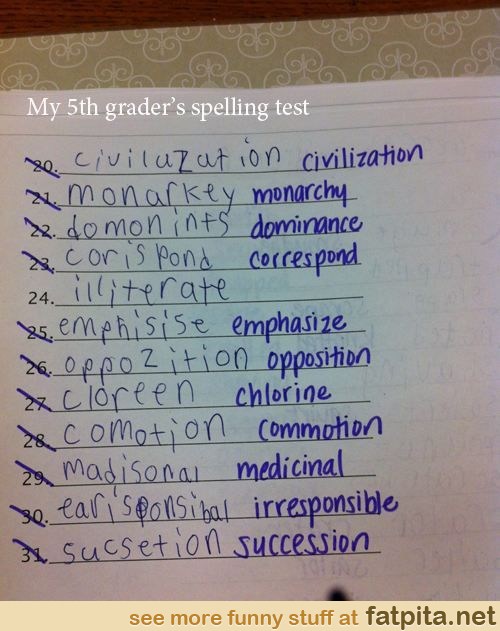 My 5th grader's spelling test
20. civiluzution civilization
21. monarkey monarchy
22. domonints dominance
23. corispond correspond
24. illiterate
25. emphisise emphasize
26. oppozition opposition
27 cloreen chlorine
28. comotion commotion
29. madisonal medicinal
30. earisponsibal irresponsible
31. sucsetion succession
see more funny stuff at fatpita.net